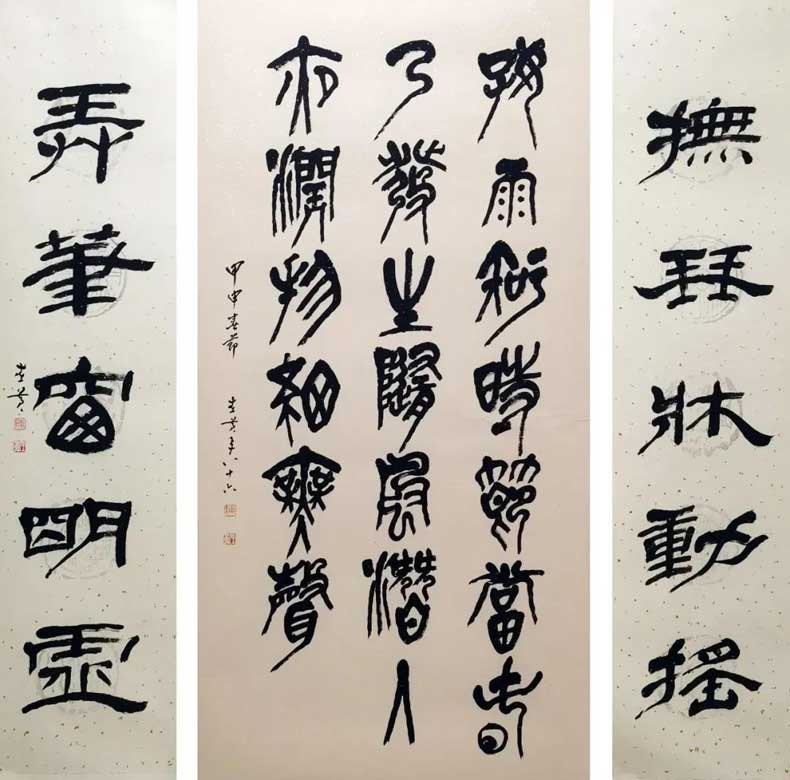 撫琴牀動搖
好雨知時節當春
乃發生隨風潛入
夜潤物細無聲
甲申春節 年八十六
弄筆窗明虛